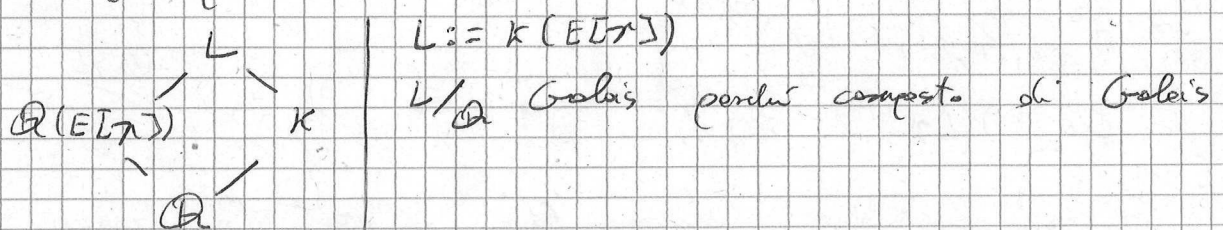 L
Q(E[n]) K
Q
L := K(E[n])
L/Q Galois perché composto di Galois